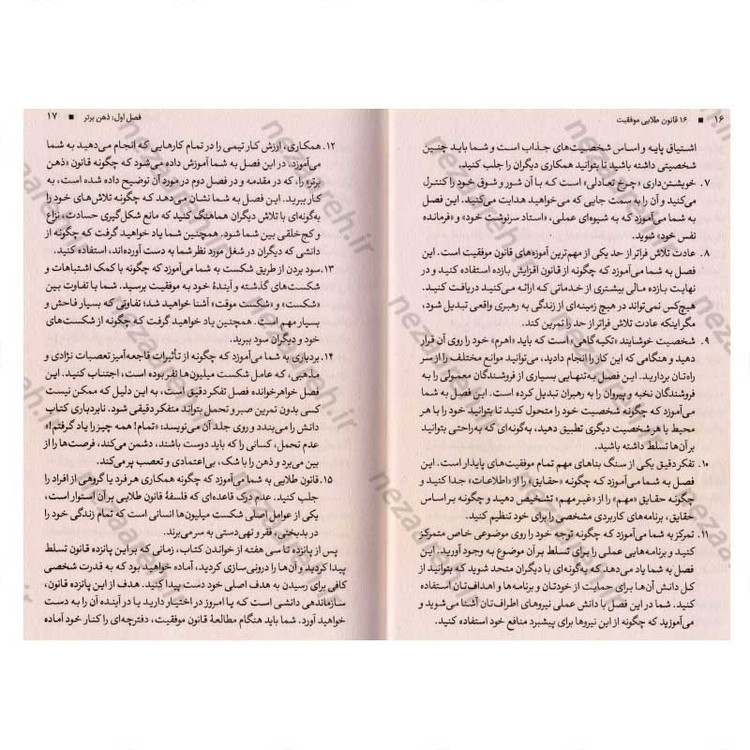 ۱۶ ■ ۱۶ قانون طلایی موفقیت
اشتیاق پایه و اساس شخصیت‌های جذاب است و شما باید چنین
شخصیتی داشته باشید تا بتوانید همکاری دیگران را جلب کنید.
۷. خویشتن‌داری «چرخ تعادلی» است که با آن شور و شوق خود را کنترل
می‌کنید و آن را به سمت جایی که می‌خواهید هدایت می‌کنید. این فصل
به شما می‌آموزد که به شیوه‌ای عملی، «استاد سرنوشت خود» و «فرمانده
نفس خود» شوید.
۸. عادت تلاش فراتر از حد یکی از مهم‌ترین آموزه‌های قانون موفقیت است. این
فصل به شما می‌آموزد که چگونه از قانون افزایش بازده استفاده کنید و در
نهایت بازده مالی بیشتری از خدماتی که ارائه می‌کنید دریافت کنید.
هیچ‌کس نمی‌تواند در هیچ زمینه‌ای از زندگی به رهبری واقعی تبدیل شود،
مگر اینکه عادت تلاش فراتر از حد را تمرین کند.
۹. شخصیت خوشایند «تکیه‌گاهی» است که باید «اهرم» خود را روی آن قرار
دهید و هنگامی که این کار را انجام دادید، می‌توانید موانع مختلف را از سر
راه‌تان بردارید. این فصل به‌تنهایی بسیاری از فروشندگان معمولی را به
فروشندگان نخبه و پیروان را به رهبران تبدیل کرده است. این فصل به شما
می‌آموزد که چگونه شخصیت خود را متحول کنید تا بتوانید خود را با هر
محیط یا هر شخصیت دیگری تطبیق دهید، به‌گونه‌ای که به‌راحتی بتوانید
بر آن‌ها تسلط داشته باشید.
۱۰. تفکر دقیق یکی از سنگ بناهای مهم تمام موفقیت‌های پایدار است. این
فصل به شما می‌آموزد که چگونه «حقایق» را از «اطلاعات» جدا کنید و
چگونه حقایق «مهم» را از «غیرمهم» تشخیص دهید و چگونه بر اساس
حقایق، برنامه‌های کاربردی مشخصی را برای خود تنظیم کنید.
۱۱. تمرکز به شما می‌آموزد که چگونه توجه خود را روی موضوعی خاص متمرکز
کنید و برنامه‌هایی عملی را برای تسلط بر آن موضوع به وجود آورید. این
فصل به شما یاد می‌دهد که به‌گونه‌ای با دیگران متحد شوید که بتوانید از
کل دانش آن‌ها برای حمایت از خودتان و برنامه‌ها و اهداف‌تان استفاده
کنید. شما در این فصل با دانش عملی نیروهای اطراف‌تان آشنا می‌شوید و
می‌آموزید که چگونه از این نیروها برای پیشبرد منافع خود استفاده کنید.
فصل اول: ذهن برتر ■ ۱۷
۱۲. همکاری، ارزش کار تیمی را در تمام کارهایی که انجام می‌دهید به شما
می‌آموزد. در این فصل به شما آموزش داده می‌شود که چگونه قانون «ذهن
برتر» را، که در مقدمه و در فصل دوم در مورد آن توضیح داده شده است، به
کار ببرید. این فصل به شما نشان می‌دهد که چگونه تلاش‌های خود را
به‌گونه‌ای با تلاش دیگران هماهنگ کنید که مانع شکل‌گیری حسادت، نزاع
و کج‌خلقی بین شما شود. همچنین شما یاد خواهید گرفت که چگونه از
دانشی که دیگران در شغل مورد نظر شما به دست آورده‌اند، استفاده کنید.
۱۳. سود بردن از طریق شکست به شما می‌آموزد که چگونه با کمک اشتباهات و
شکست‌های گذشته و آیندهٔ خود به موفقیت برسید. شما با تفاوت بین
«شکست» و «شکست موقت» آشنا خواهید شد؛ تفاوتی که بسیار فاحش و
بسیار مهم است. همچنین یاد خواهید گرفت که چگونه از شکست‌های
خود و دیگران سود ببرید.
۱۴. بردباری به شما می‌آموزد که چگونه از تأثیرات فاجعه‌آمیز تعصبات نژادی و
مذهبی، که عامل شکست میلیون‌ها نفر بوده است، اجتناب کنید. این
فصل خواهرخوانده فصل تفکر دقیق است، به این دلیل که ممکن نیست
کسی بدون تمرین صبر و تحمل بتواند متفکر دقیقی شود. نابردباری کتاب
دانش را می‌بندد و روی جلد آن می‌نویسد: «تمام! همه چیز را یاد گرفتم!».
عدم تحمل، کسانی را که باید دوست باشند، دشمن می‌کند، فرصت‌ها را از
بین می‌برد و ذهن را با شک، بی‌اعتمادی و تعصب پر می‌کند.
۱۵. قانون طلایی به شما می‌آموزد که چگونه همکاری هر فرد یا گروهی از افراد را
جلب کنید. عدم درک قاعده‌ای که فلسفهٔ قانون طلایی بر آن استوار است،
یکی از عوامل اصلی شکست میلیون‌ها انسانی است که تمام زندگی خود را
در بدبختی، فقر و تهی‌دستی به سر می‌برند.
پس از پانزده تا سی هفته از خواندن کتاب، زمانی که بر این پانزده قانون تسلط
پیدا کردید و آن‌ها را درونی‌سازی کردید، آماده خواهید بود که به قدرت شخصی
کافی برای رسیدن به هدف اصلی خود دست پیدا کنید. هدف از این پانزده قانون،
سازماندهی دانشی است که یا امروز در اختیار دارید یا در آینده آن را به دست
خواهید آورد. شما باید هنگام مطالعهٔ قانون موفقیت، دفترچه‌ای را کنار خود آماده
nezareh.ir